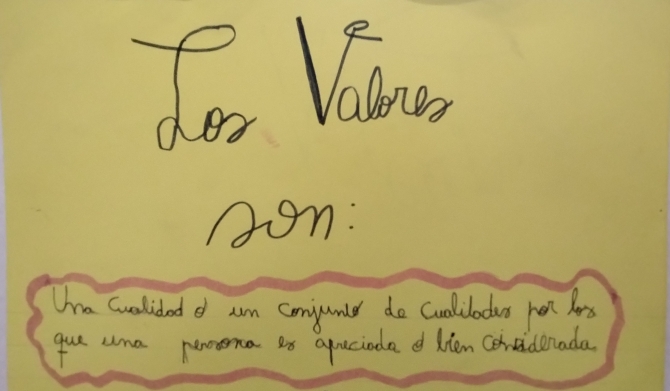 Los Valores
son:
Una cualidad ó un conjunto de cualidades por los
que una persona es apreciada ó bien considerada